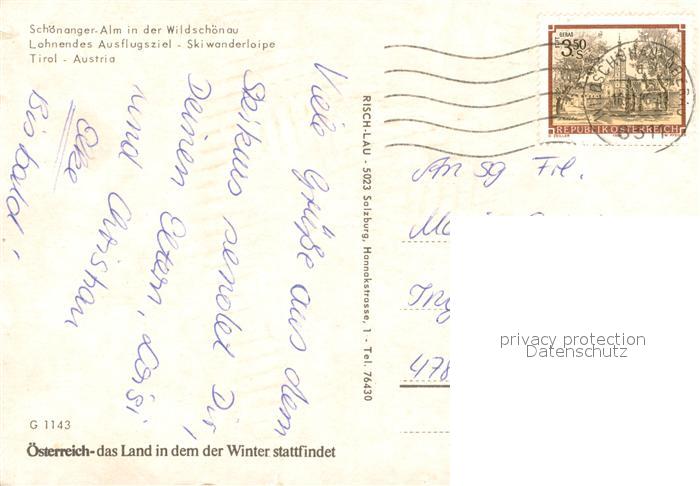 Schönanger-Alm in der Wildschönau
Lohnendes Ausflugsziel - Skiwanderloipe
Tirol - Austria
Viele Grüße aus dem
Skikurs sendet Dir,
Deinen Eltern,
und Christian
Bis bald!
G 1143
Österreich-das Land in dem der Winter stattfindet
RISCH-LAU - 5023 Salzburg, Hannakstrasse, 1 - Tel. 76430
GERAS
3.50
S
REPUBLIK ÖSTERREICH
An sg Frl.
478
privacy protection
Datenschutz